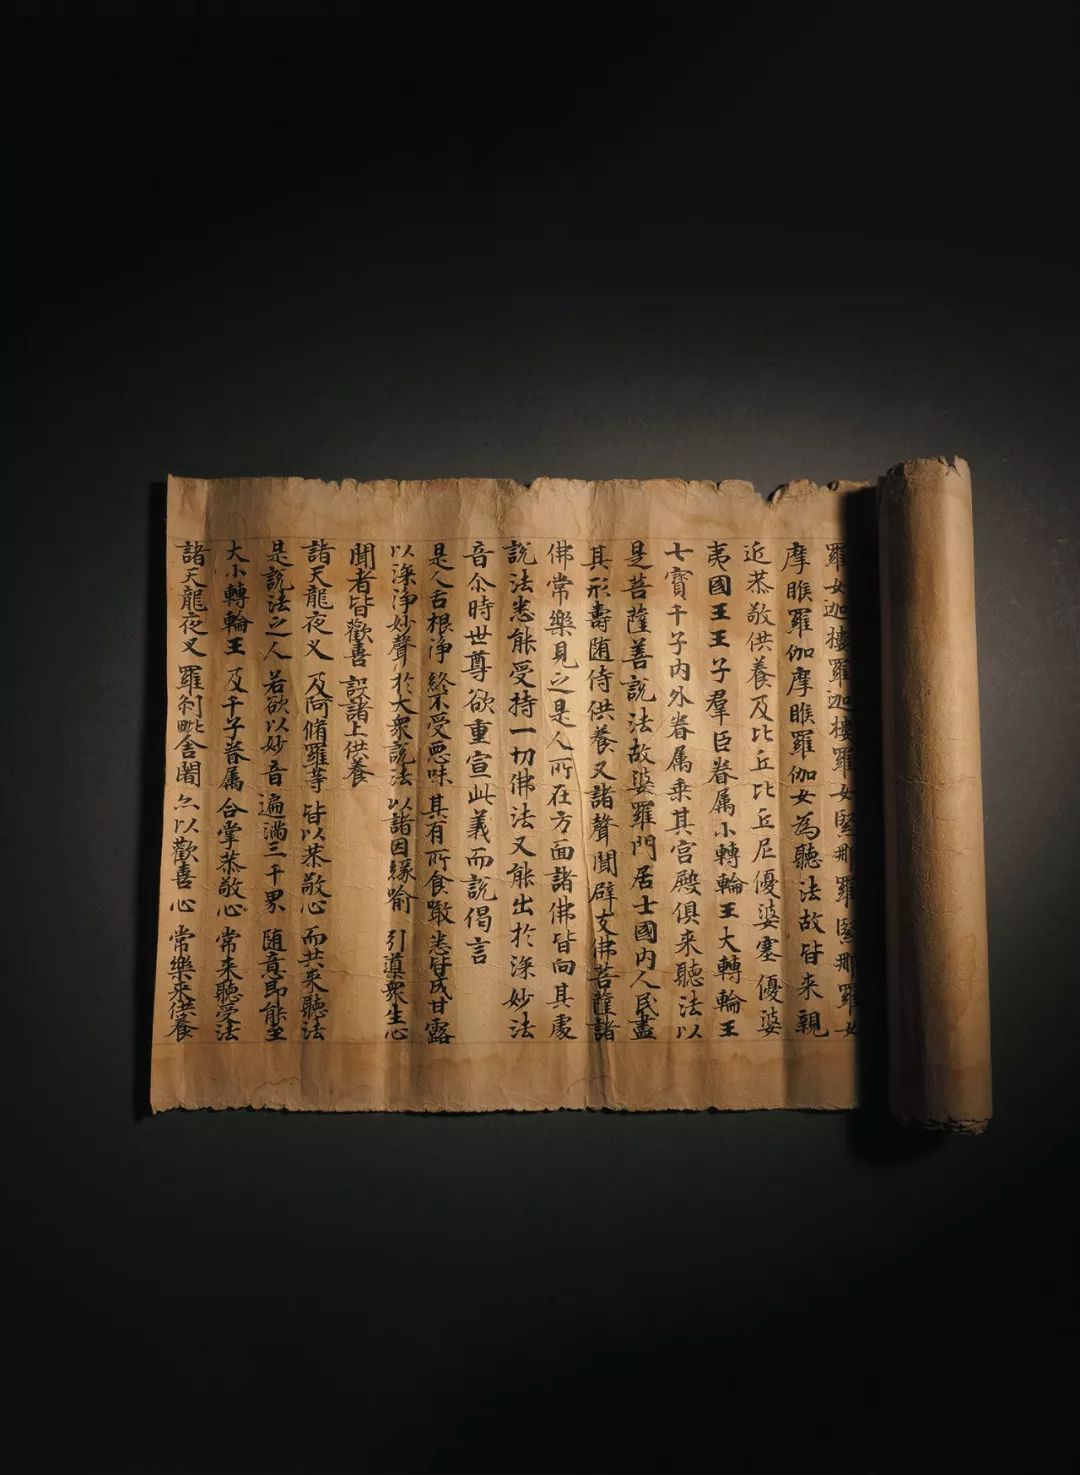 羅女迦樓羅迦樓羅女緊那羅緊那羅女
摩睺羅伽摩睺羅伽女為聽法故皆来親
近恭敬供養及比丘比丘尼優婆塞優婆
夷國王王子羣臣眷属小轉輪王大轉輪王
七寶千子内外眷属乗其宮殿俱来聽法以
是菩薩善說法故婆羅門居士國内人民盡
其形壽随侍供養又諸聲聞辟支佛菩薩諸
佛常樂見之是人所在方面諸佛皆向其處
說法悉能受持一切佛法又能出於深妙法
音尒時世尊欲重宣此義而說偈言
是人舌根淨　終不受惡味　其有所食噉　悉皆成甘露
以深淨妙聲　於大衆說法　以諸因緣喻　引導衆生心
聞者皆歡喜　設諸上供養
諸天龍夜叉　及阿脩羅等　皆以恭敬心　而共来聽法
是說法之人　若欲以妙音　遍滿三千界　随意即能至
大小轉輪王　及千子眷属　合掌恭敬心　常来聽受法
諸天龍夜叉　羅刹毗舍闍　亦以歡喜心　常樂来供養